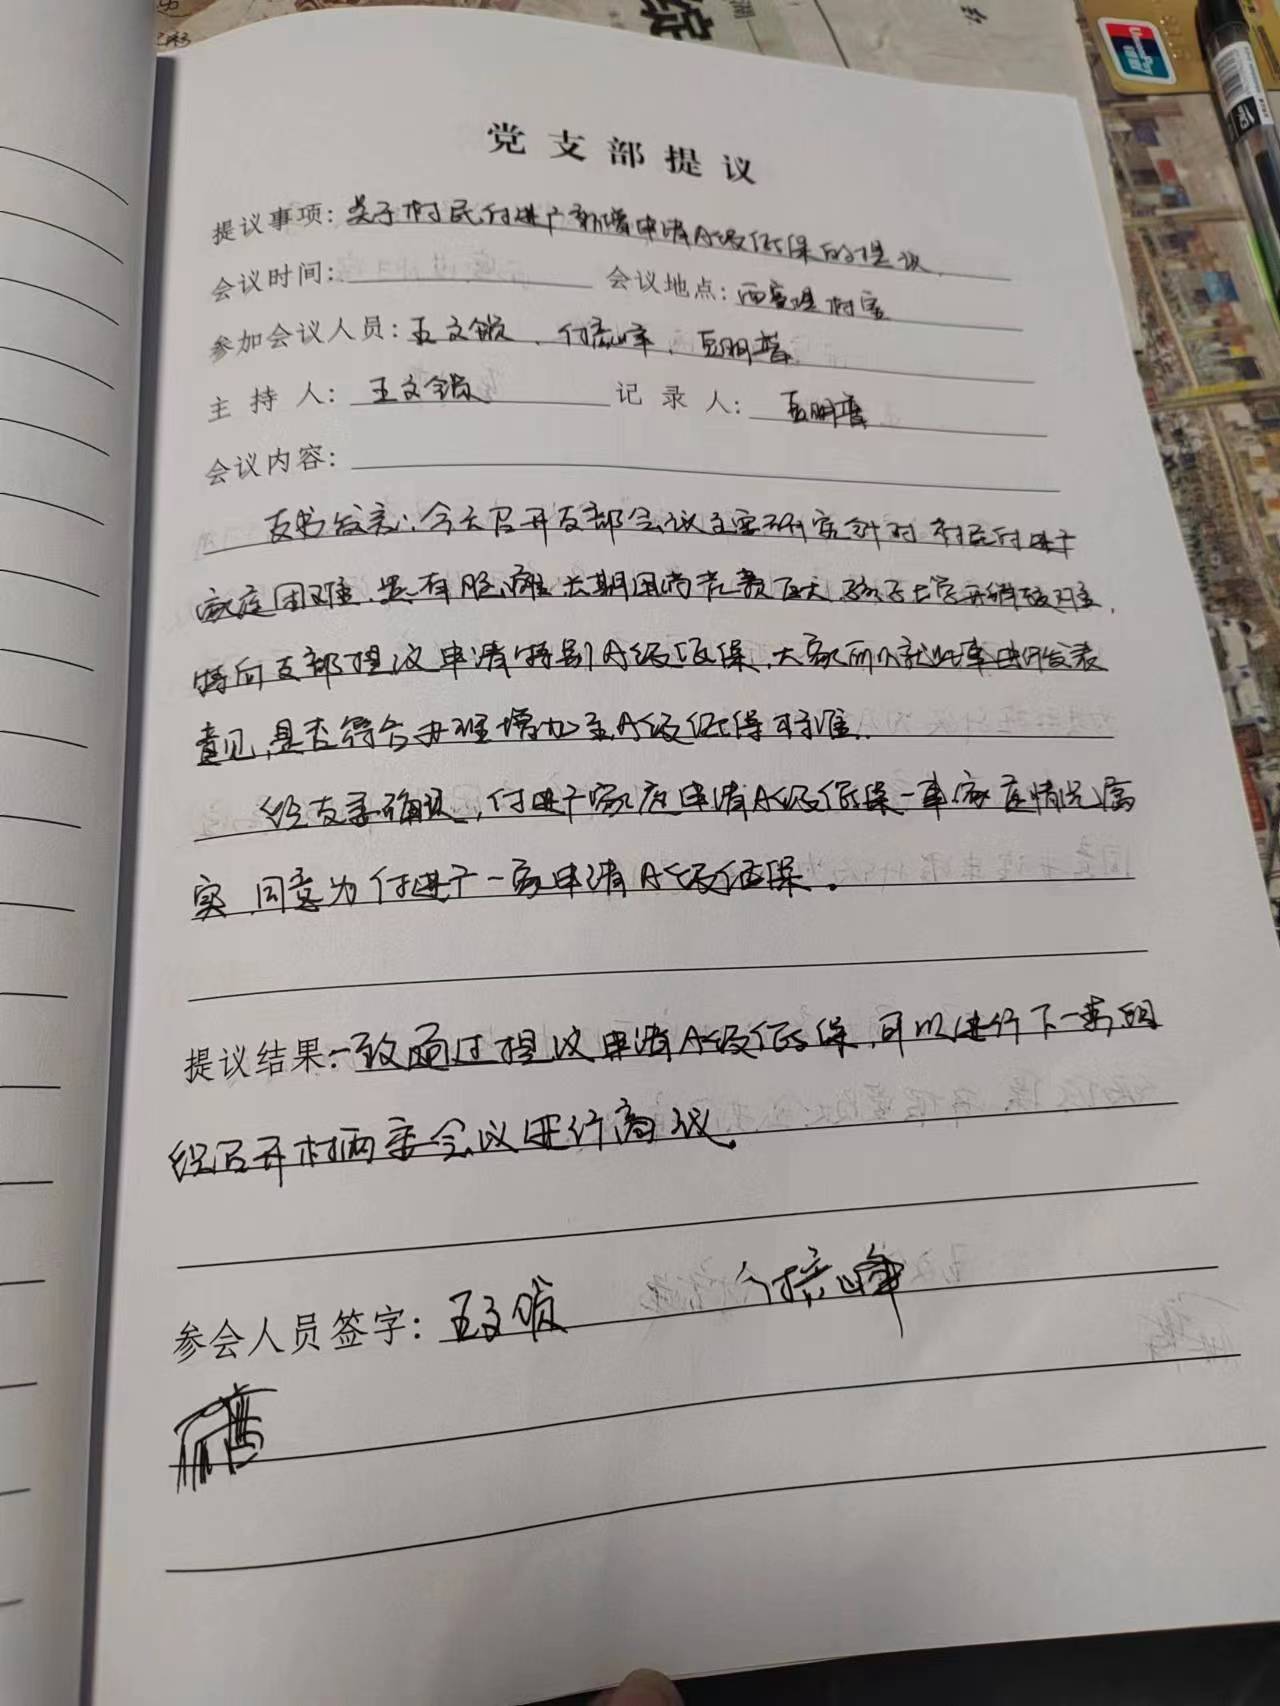 综
党支部提议
提议事项：关于村民付进广新增申请A级低保的提议
会议时间：　会议地点：西 村室
参加会议人员：王文锁、付 峰、王明普
主持人：王文锁　记录人：王明普
会议内容：
支书发言：今天召开支部会议主要研究针对村民付进广
家庭困难，患有 长期用药花费巨大，孩子上学开销较 ，
特向支部提议申请特别A级低保，大家所以就此事由发表
意见，是否符合办理增加至A级低保标准。
经支委确认，付进广家庭申请A级低保一事家庭情况属
实，同意为付进广一家申请A级低保。
提议结果：一致通过提议申请A级低保，可以进行下一步组
织召开村两委会议进行商议。
参会人员签字：王文锁　付 峰